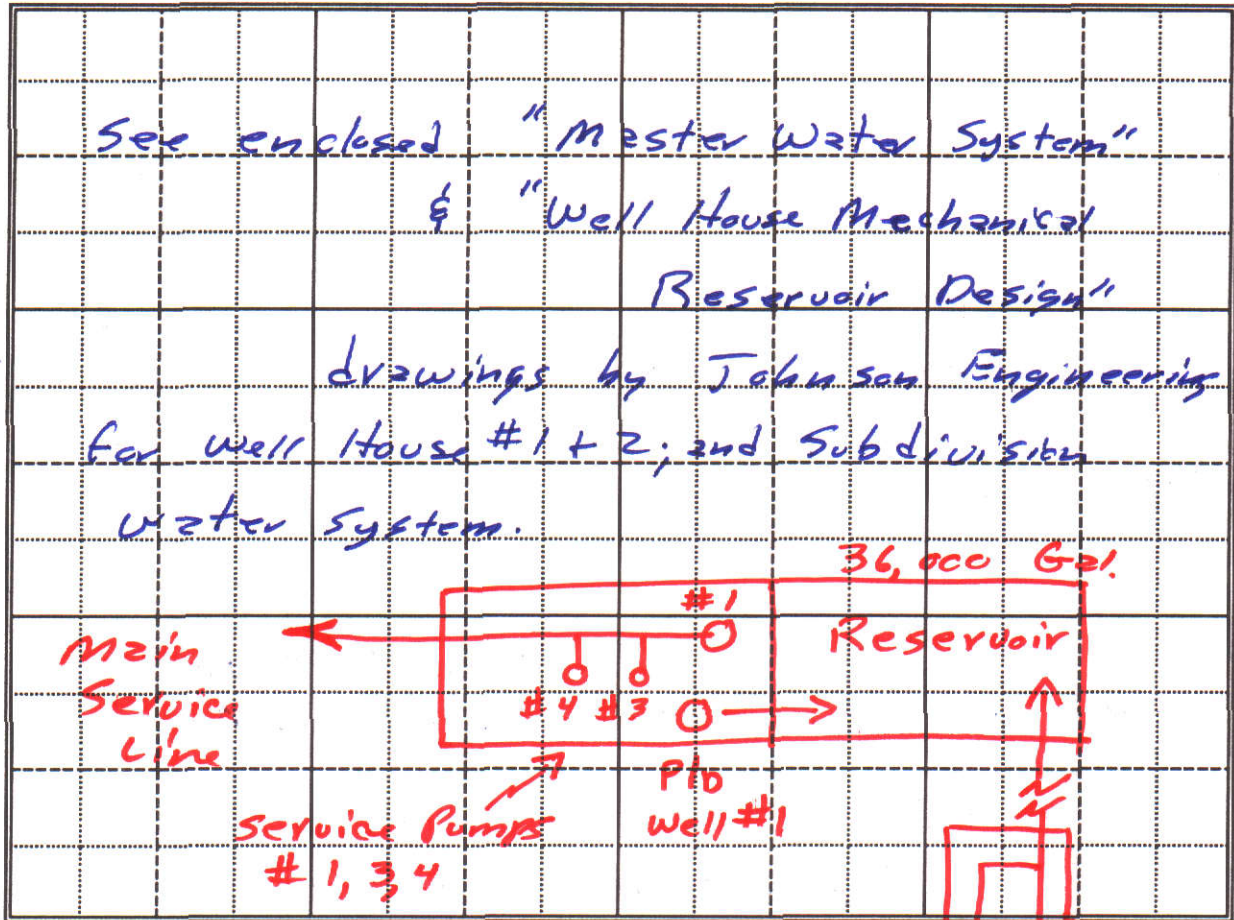 See enclosed "Master Water System"
& "Well House Mechanical
Reservoir Design"
drawings by Johnson Engineering
for Well House #1 + 2; and Subdivision
water system.
36,000 Gal.
#1
Reservoir
Main
Service
Line
#4 #3
Well #1
Service Pumps
#1, 3, 4